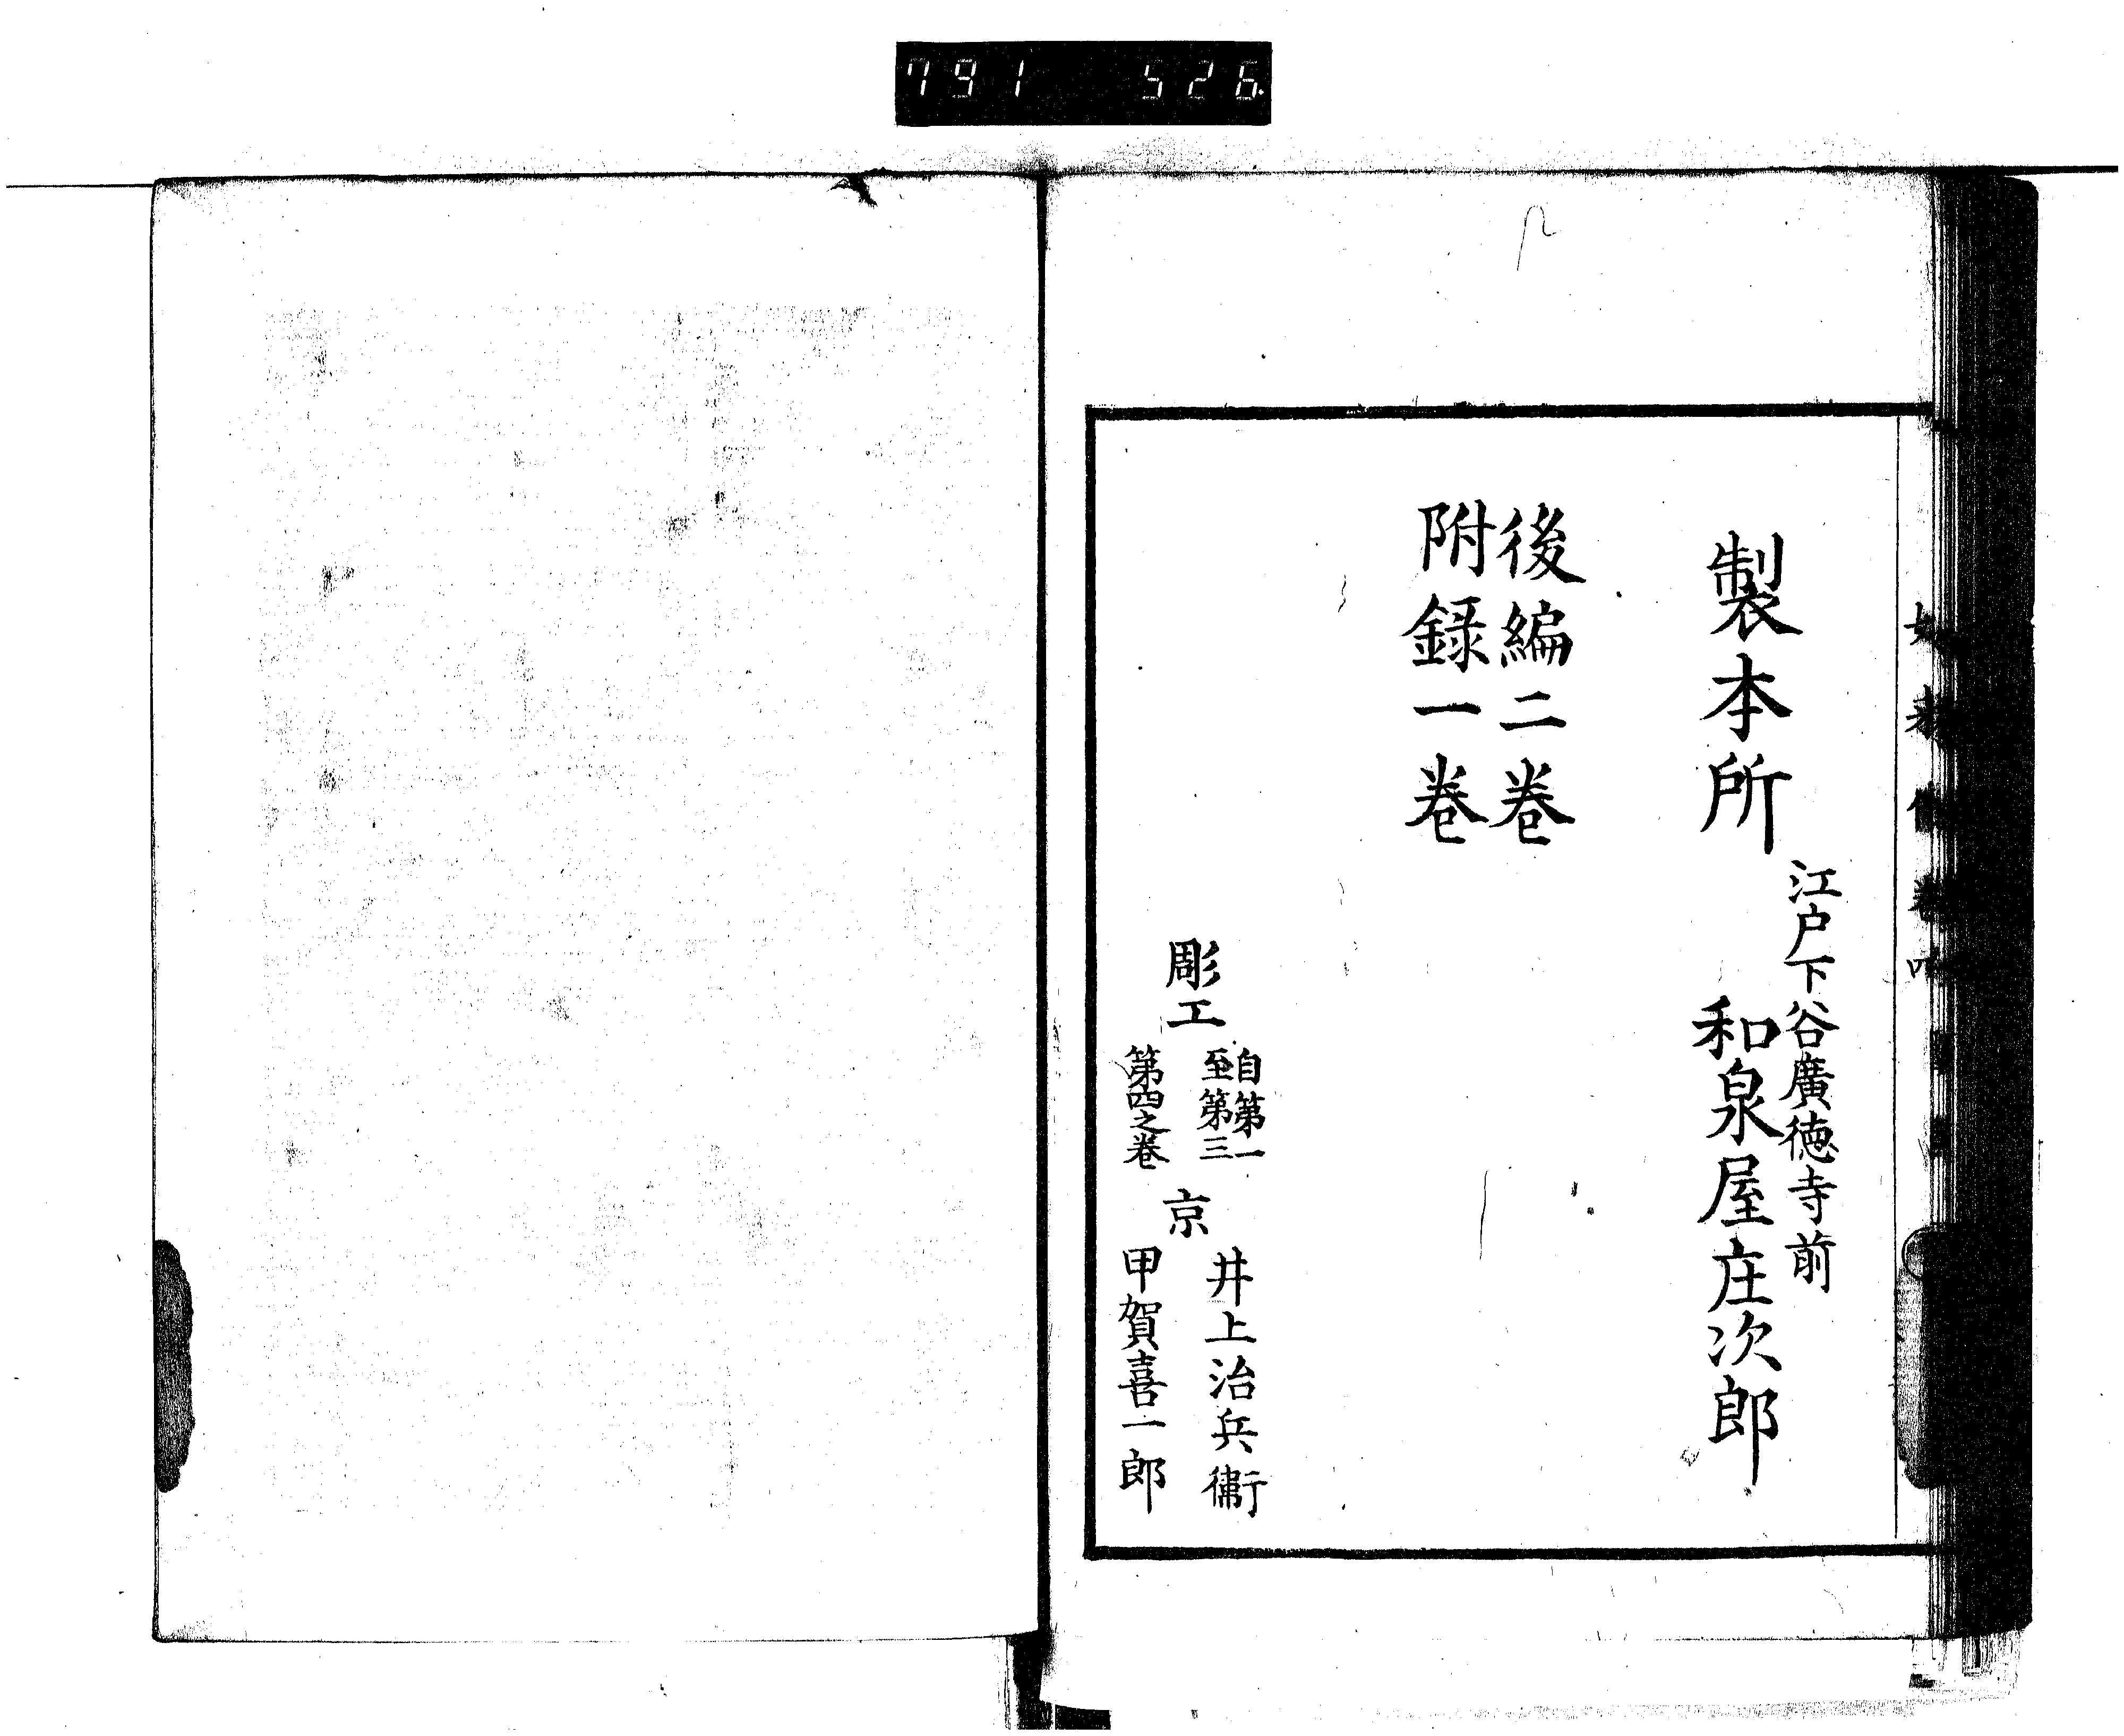 791 526
製本所
江戸下谷廣徳寺前
和泉屋庄次郎
後編二巻
附録一巻
彫工
自第一
至第三
第四之巻
京
井上治兵衛
甲賀喜一郎